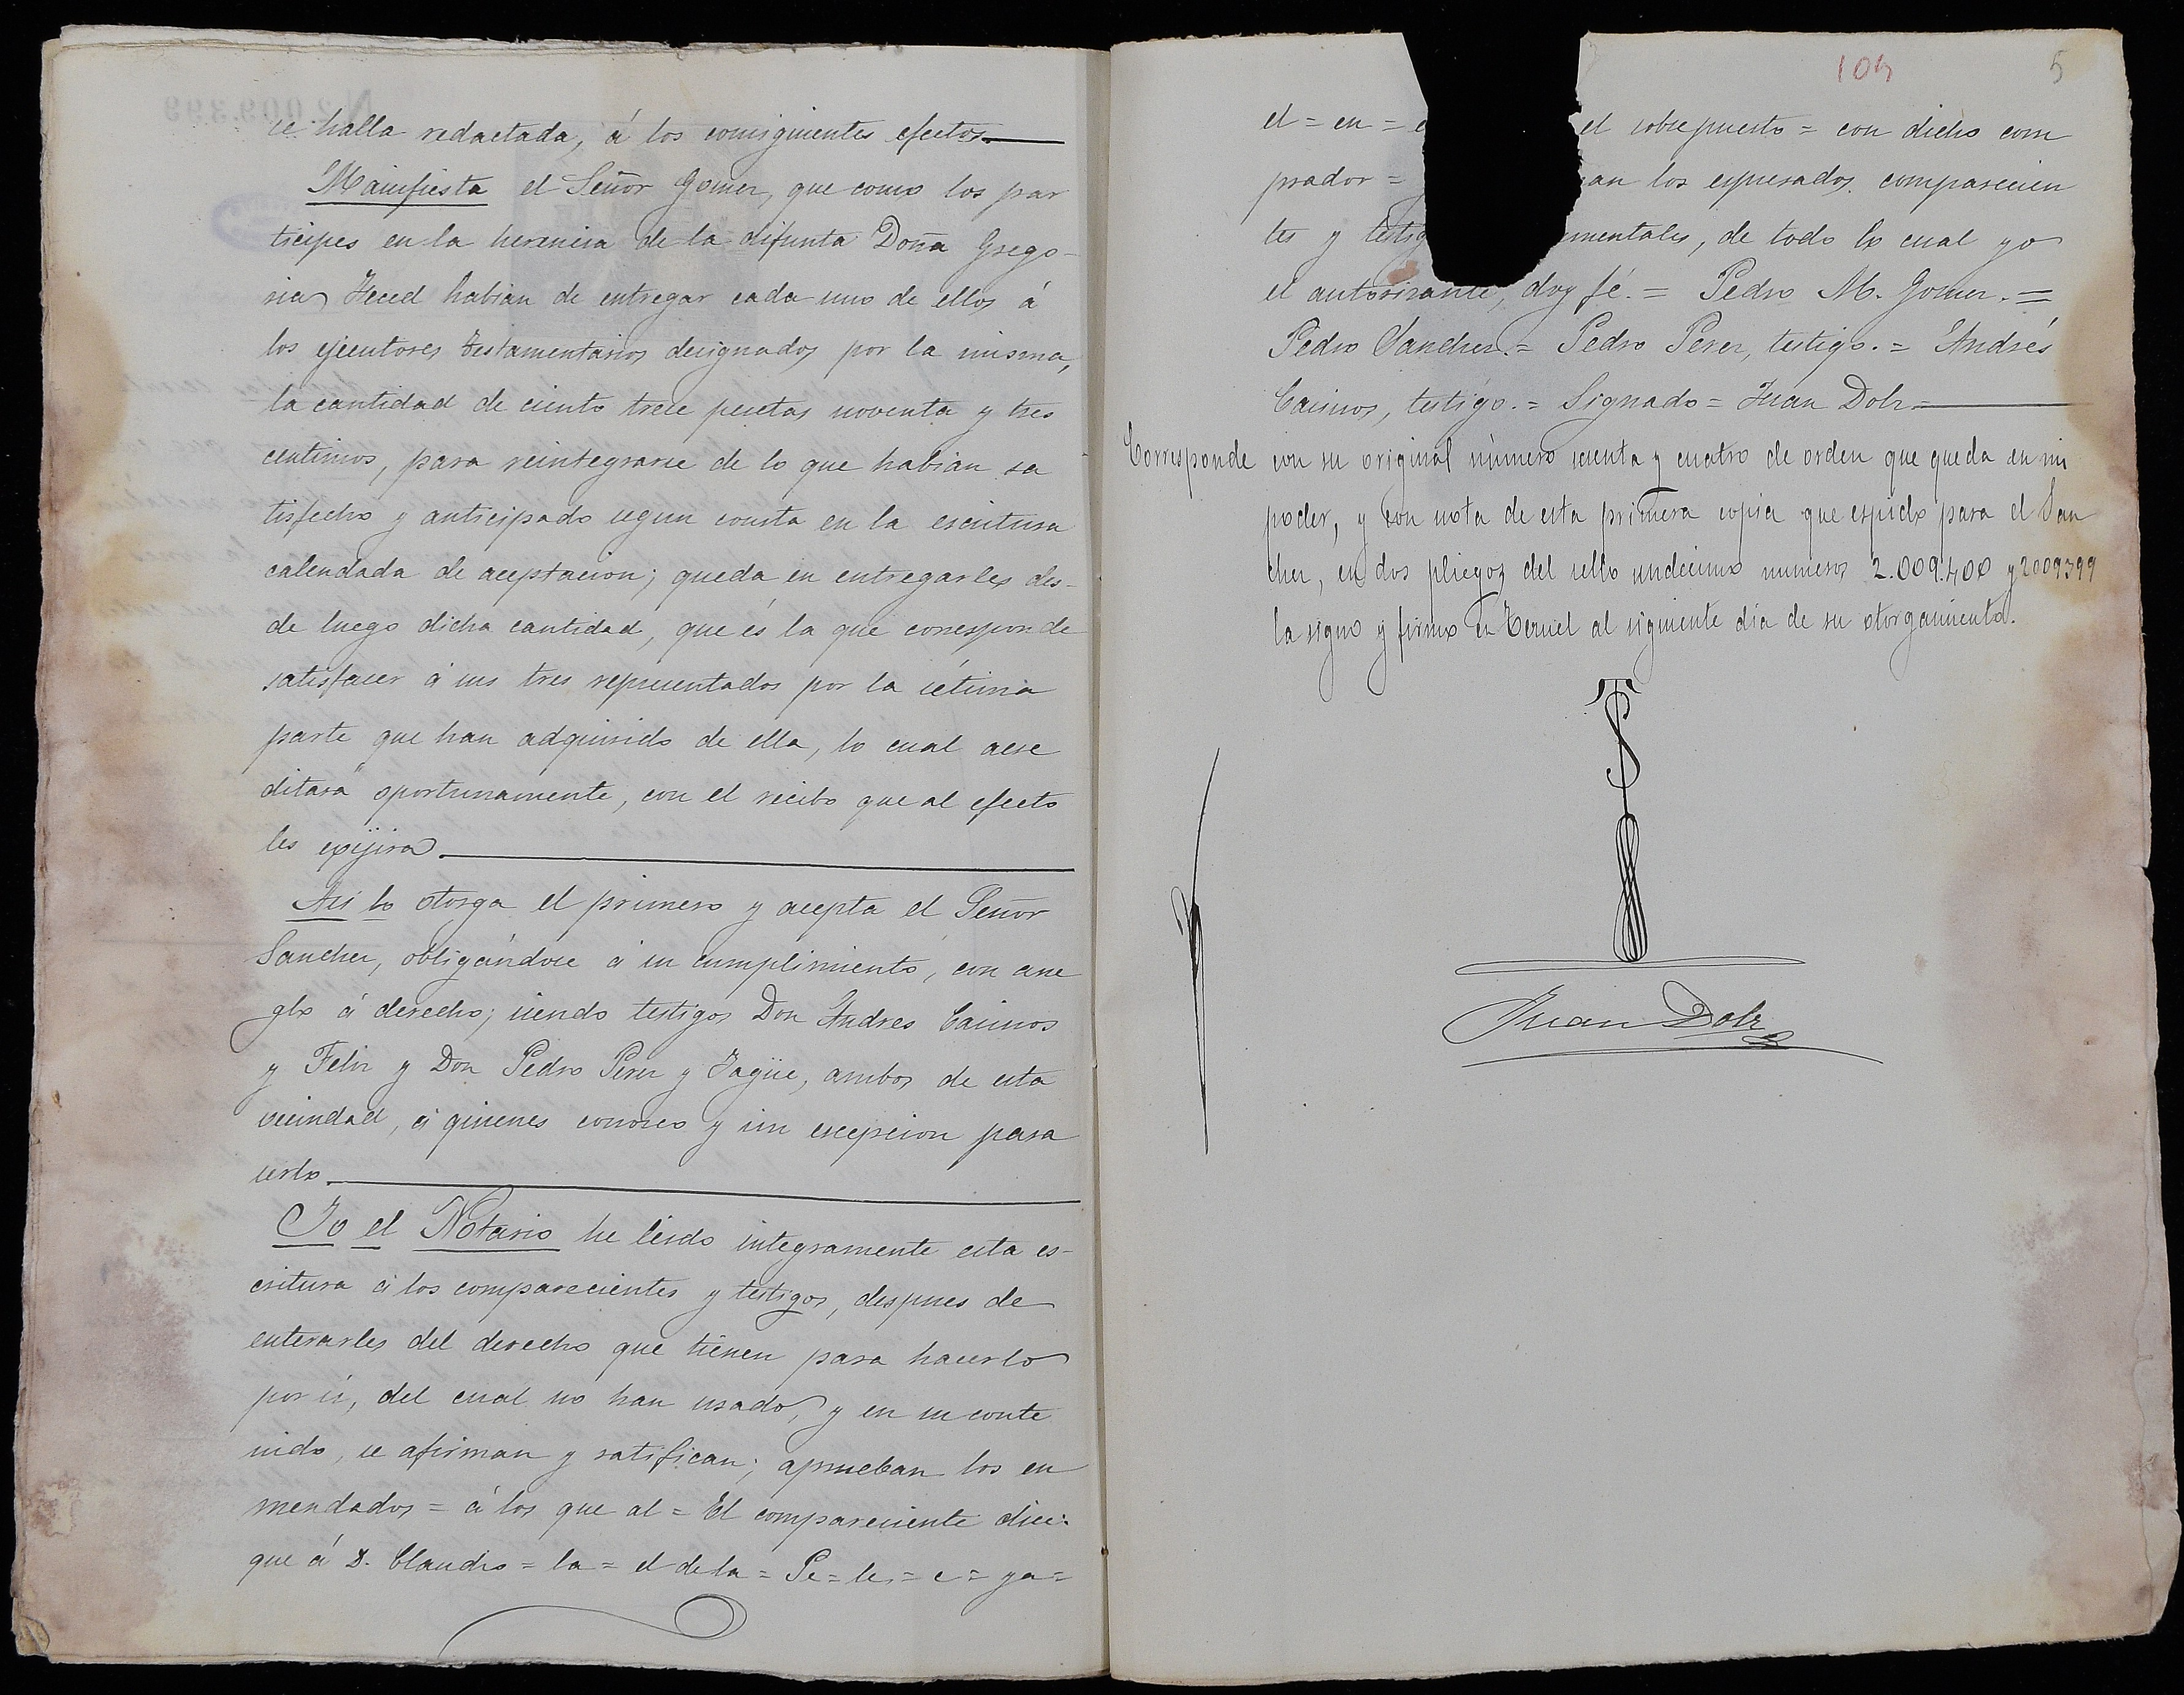 se halla redactada, á los consiguientes efectos.
Manifiesta el Señor Gomez, que como los par
tícipes en la herencia de la difunta Doña Grego-
ria Heced habian de entregar cada uno de ellos á
los ejecutores testamentarios designados por la misma,
la cantidad de ciento trece pesetas noventa y tres
centimos, para reintegrarse de lo que habian sa
tisfecho y anticipado segun consta en la escritura
calendada de aceptacion; queda en entregarles des-
de luego dicha cantidad, que és la que corresponde
satisfacer á sus tres representados por la sétima
parte que han adquirido de ella, lo cual acre
ditará oportunamente, con el recibo que al efecto
les exijira.
Asi lo otorga el primero y acepta el Señor
Sanchez, obligándose á su cumplimiento, con arre
glo á derecho; siendo testigos Don Andres Casinos
y Feliz y Don Pedro Perez y Yagüe, ambos de esta
vecindad, á quienes conozco y sin escepcion para
serlo.
Yo el Notario he leido integramente esta es-
critura á los comparecientes y testigos, despues de
enterarles del derecho que tienen para hacerlo
por sí, del cual no han usado, y en su conte
nido, se afirman y ratifican; aprueban los en
mendados = á los que al = El compareciente dice:
que á D. Claudio = la = el de la = Pe = le = e = ya =
104
5
el = en = el sobrepuesto = con dicho com
prador = an los espresados comparecien
tes y testig umentales, de todo lo cual yo
el autorizante, doy fé. = Pedro M. Gomez. =
Pedro Sanchez. = Pedro Perez, testigo. = Andrés
Casinos, testigo. = Signado = Juan Dolz =
Corresponde con su original número sesenta y cuatro de orden que queda en mi
poder, y con nota de esta primera copia que espido para el San
chez, en dos pliegos del sello undécimo numeros 2.009.400 y 2009399
la signo y firmo en Teruel al siguiente dia de su otorgamiento.
Juan Dolz